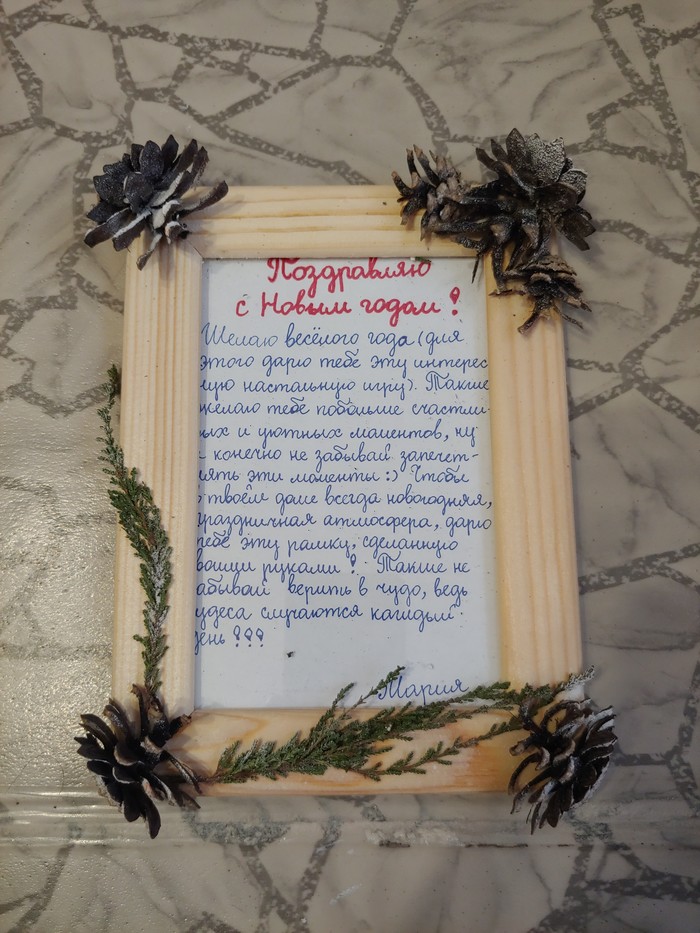 Поздравляю
с Новым годом!
Желаю весёлого года (для
этого дарю тебе эту интерес
ную настальную игру). Также
желаю тебе побольше счастли-
вых и уютных моментов, ну
и конечно не забывай запечет-
лять эти моменты :) Чтобы
в твоём доме всегда новогодняя,
праздничная атмосфера, дарю
тебе эту рамку, сделанную
своими руками! Также не
забывай верить в чудо, ведь
чудеса случаются каждый
день!!!
Мария